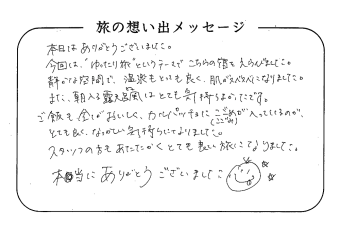 旅の想い出メッセージ
本日はありがとうございました。
今回は、"ゆったり旅"というテーマでこちらの宿をえらびました。
静かな空間で、温泉もとても良く、肌がスベスベになりました。
また、朝入る露天風呂はとても気持ちよかったです。
ご飯も全ておいしく、カルパッチョにこごめが入ってるのが、
(こごみ)
とても良く、なつかしい気持ちにてなりました。
スタッフの方もあたたかくとても良い旅になりました。
本当にありがとうございました